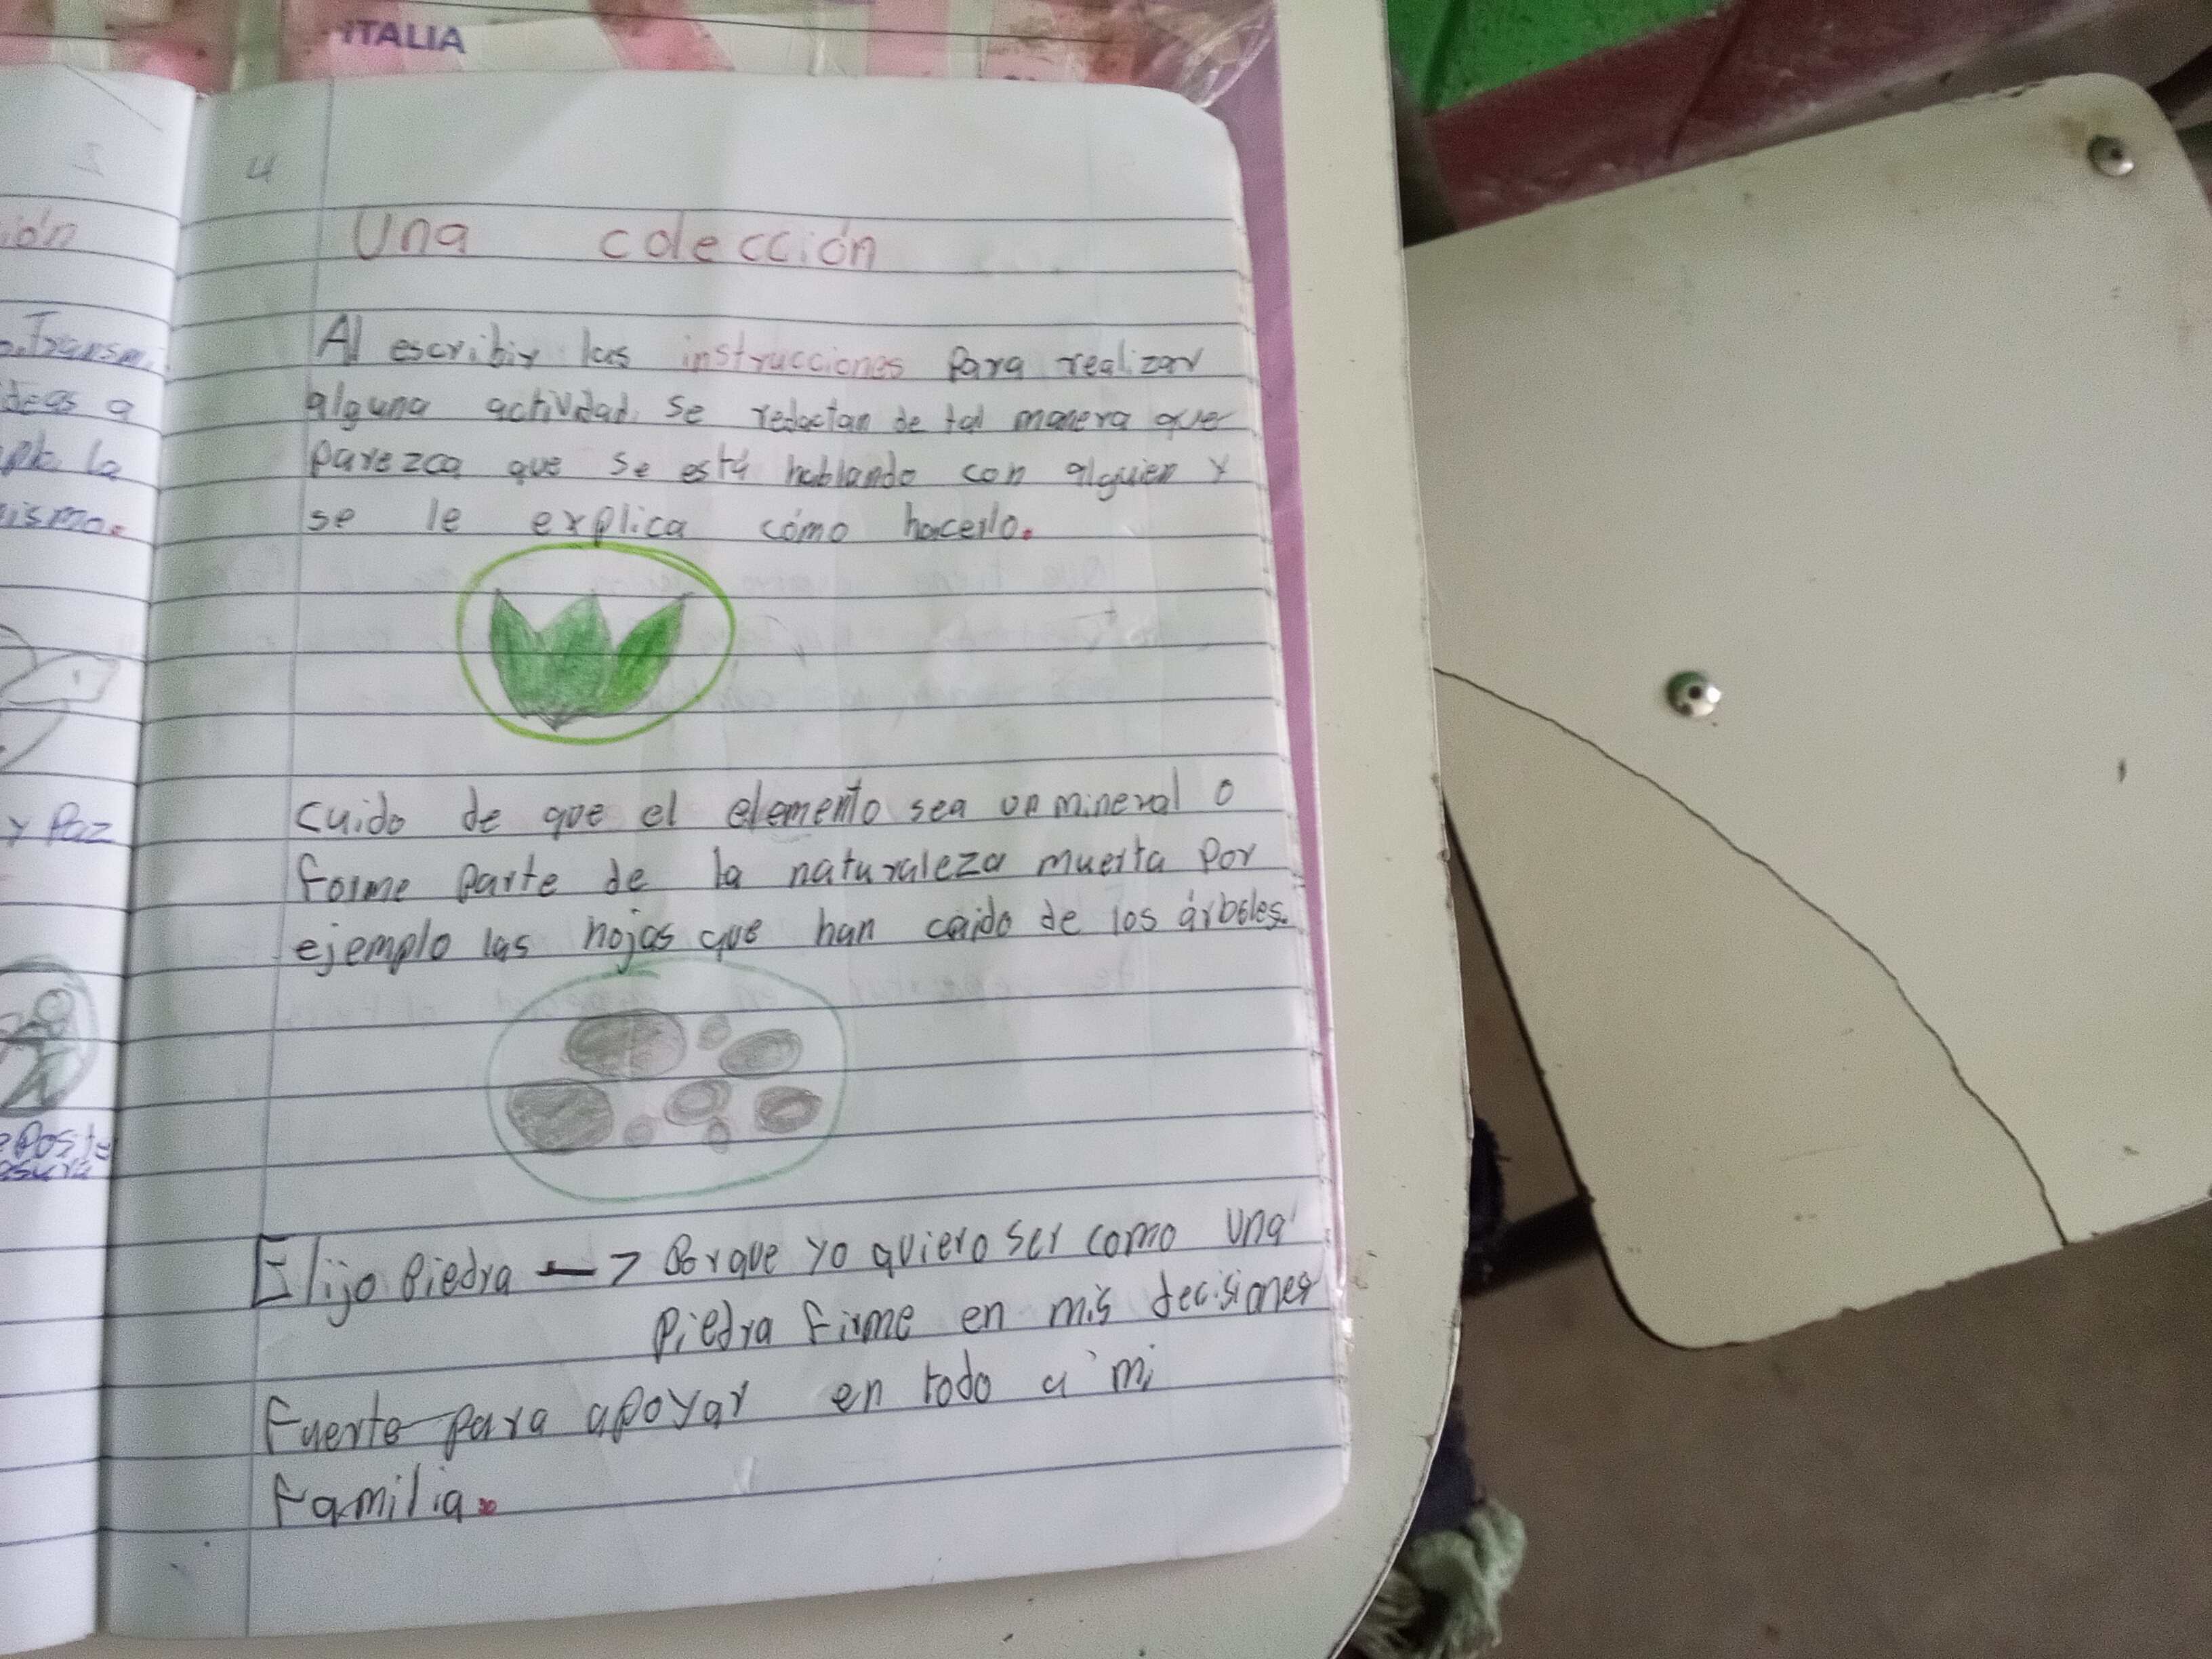 ITALIA
ión
Transmi
deas a
la
ismo.
y Paz
4
Una colección
Al escribir las instrucciones para realizar
alguna actividad, se redactan de tal manera que
parezca que se está hablando con alguien y
se le explica cómo hacerlo.
cuido de que el elemento sea un mineral o
forme parte de la naturaleza muerta por
ejemplo las hojas que han caido de los árboles.
Elijo Piedra —> Porque yo quiero ser como una
piedra firme en mis decisiones
Fuerte para apoyar en todo a mi
familia.